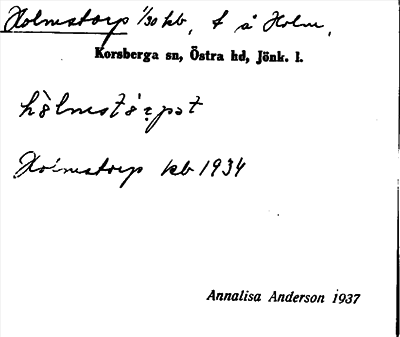 Holmstorp 1/30 kb, t å Holm,
Korsberga sn, Östra hd, Jönk. l.
hòlmstórpət
Holmstorp kb 1934
Annalisa Anderson 1937